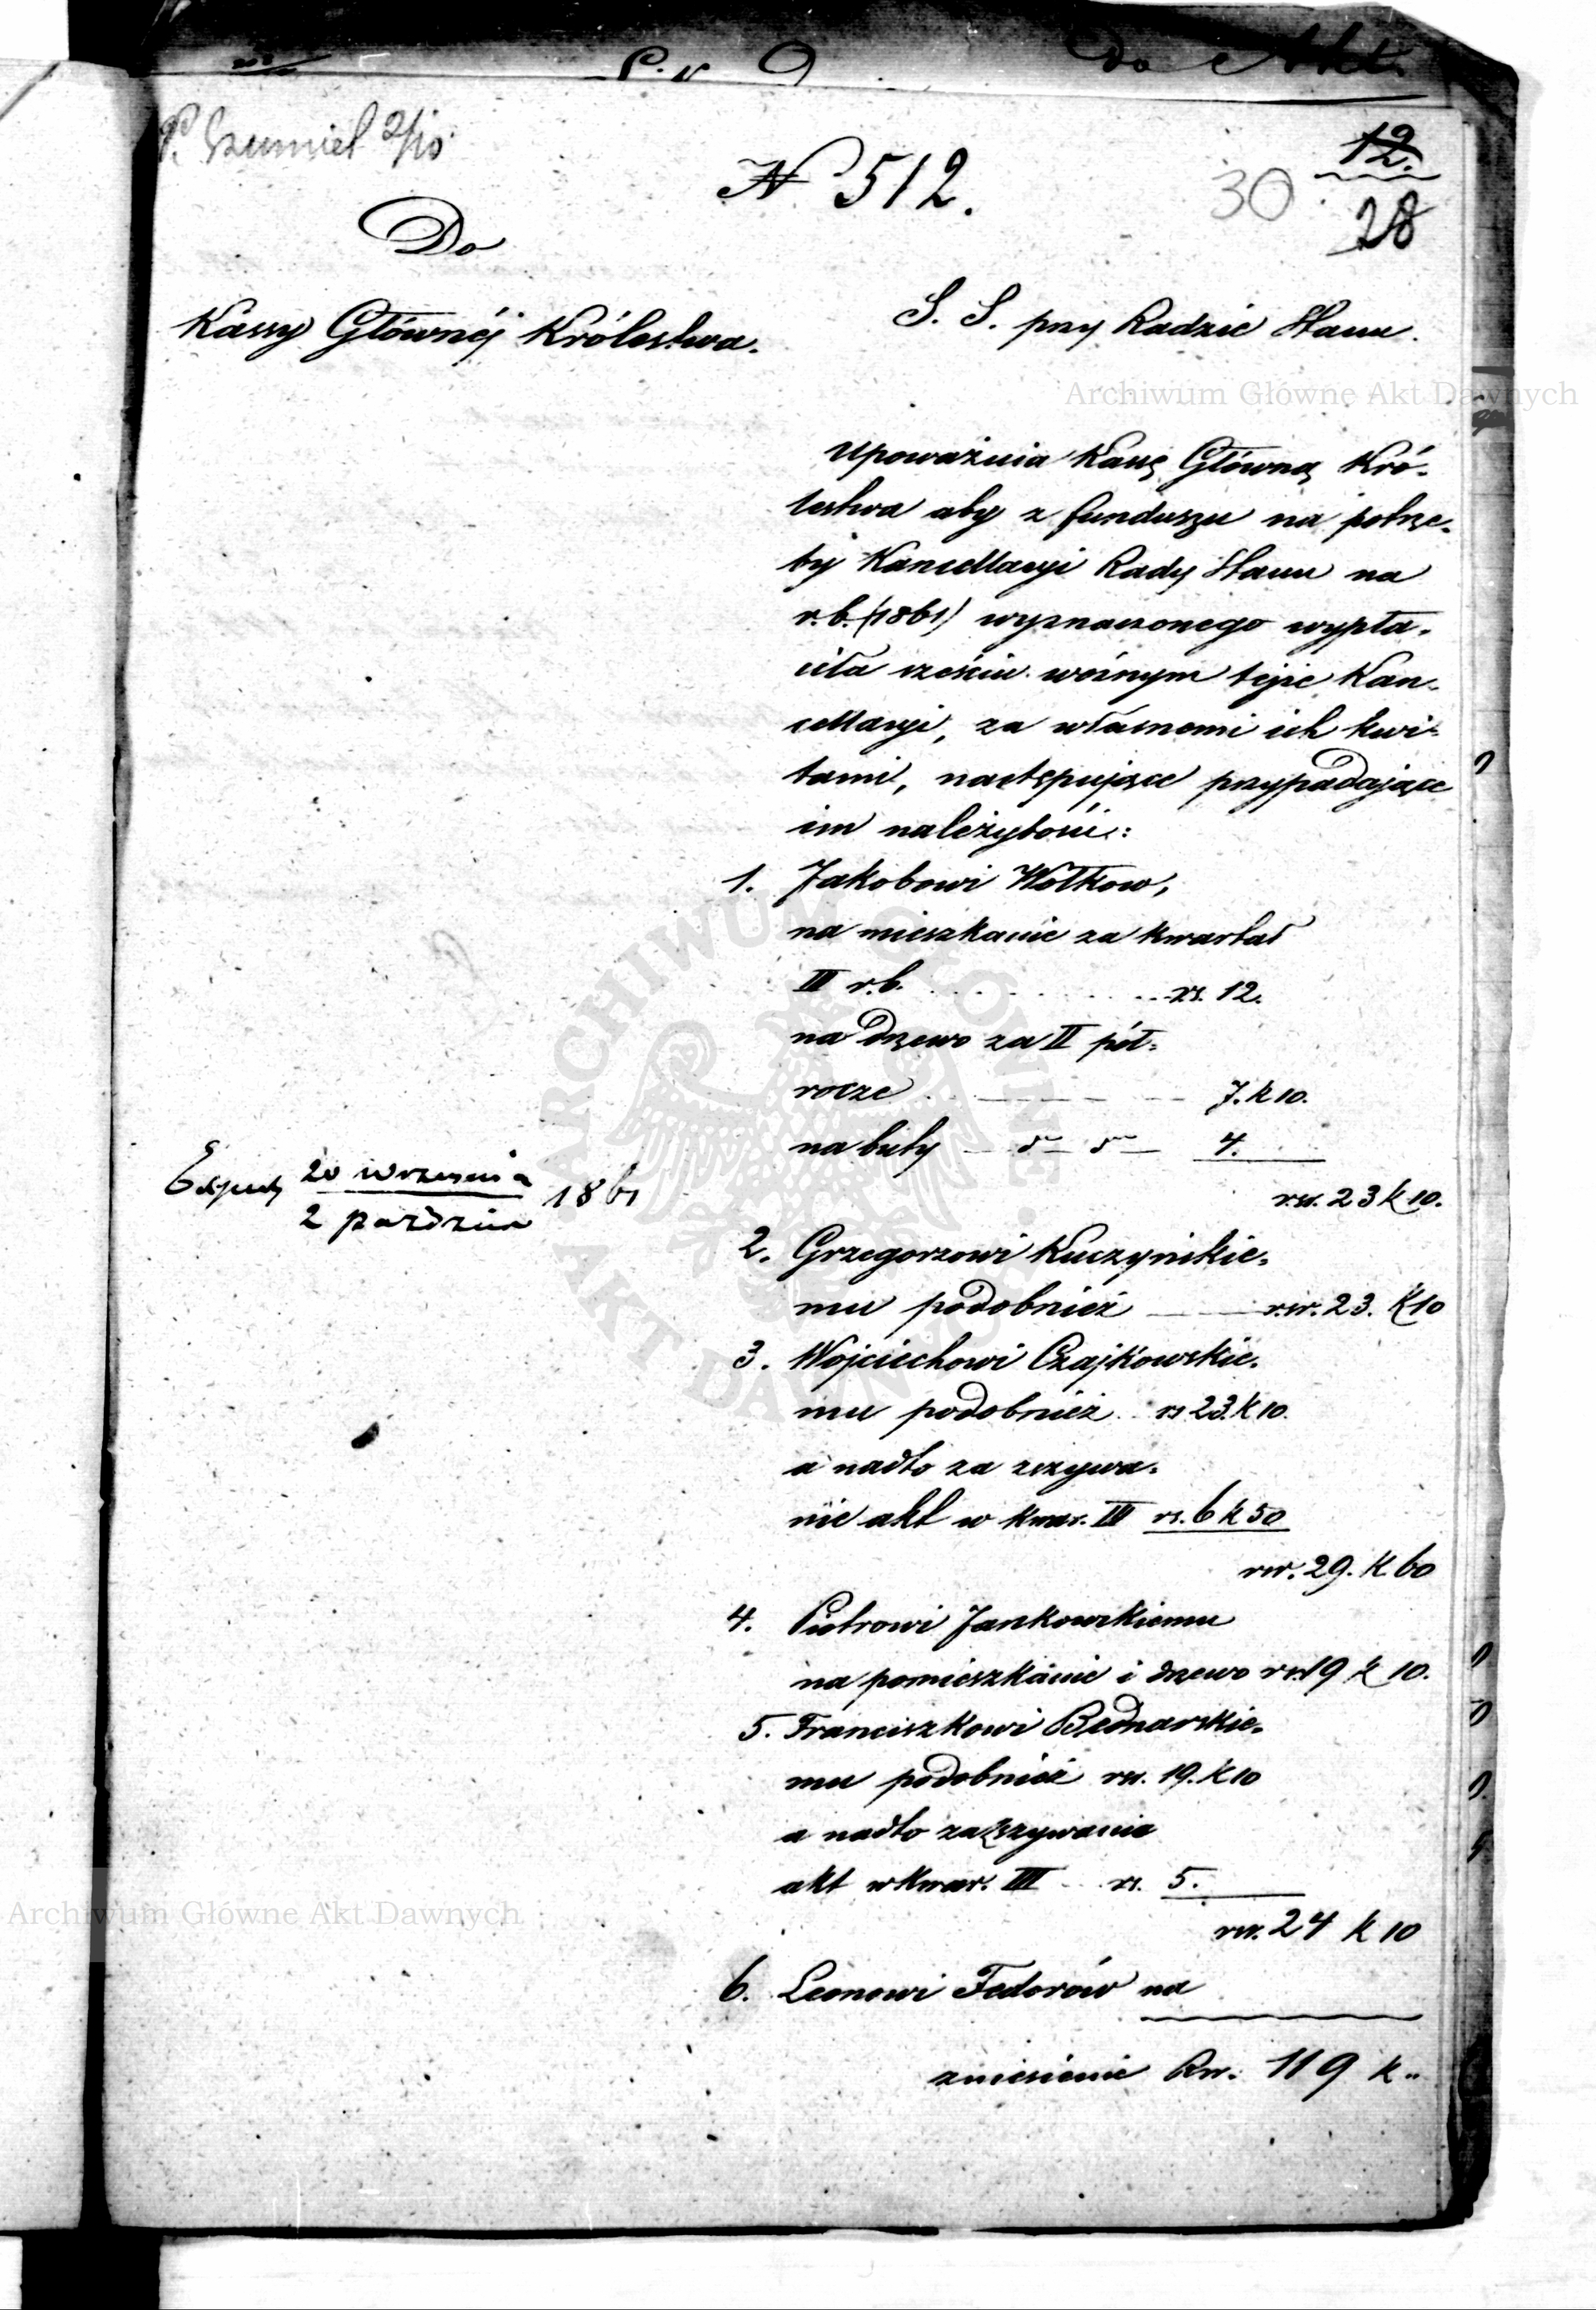 do Akt.
P. Szumiel 2/10
N 512.
12.
30
28
Do
Kassy Głównéj Królestwa.
S. S. przy Radzie Stanu.
Archiwum Główne Akt Dawnych
upoważnia Kassę Główną Kró-
lestwa aby z funduszu na potrze-
by Kancellaryi Rady Stanu na
r.b. (1861) wyznaczonego wypła-
ciła sześciu woźnym tejże Kan-
cellaryi, za własnemi ich kwi-
tami, następujące przypadające
im należytości:
1. Jakobowi Wołkow,
na mieszkanie za kwartał
III r.b. . . . . . . rs. 12.
na drzewo za II pół-
rocze . — — — — 7. k 10.
na buty — dto dto — 4.
rsr. 23 k 10.
Exped 20 września 1861
2 paździer
2. Grzegorzowi Kuczyńskie-
mu podobnież — rsr. 23. k 10
3. Wojciechowi Czajkowskie-
mu podobnież . rs 23. k 10.
a nadto za zszywa-
nie akt w kwar. III rs. 6 k 50
rsr. 29. k. 60
4. Piotrowi Jankowskiemu
na pomieszkanie i drzewo rsr 19 k 10.
5. Franciszkowi Bednarskie-
mu podobnież rsr. 19. k 10
a nadto za zszywanie
akt w kwar. III rs. 5.
Archiwum Główne Akt Dawnych
rsr. 24 k 10
6. Leonowi Fedorów na
zniesienie Rsr. 119 k „
ARCHIWUM GŁÓWNE
AKT DAWNYCH